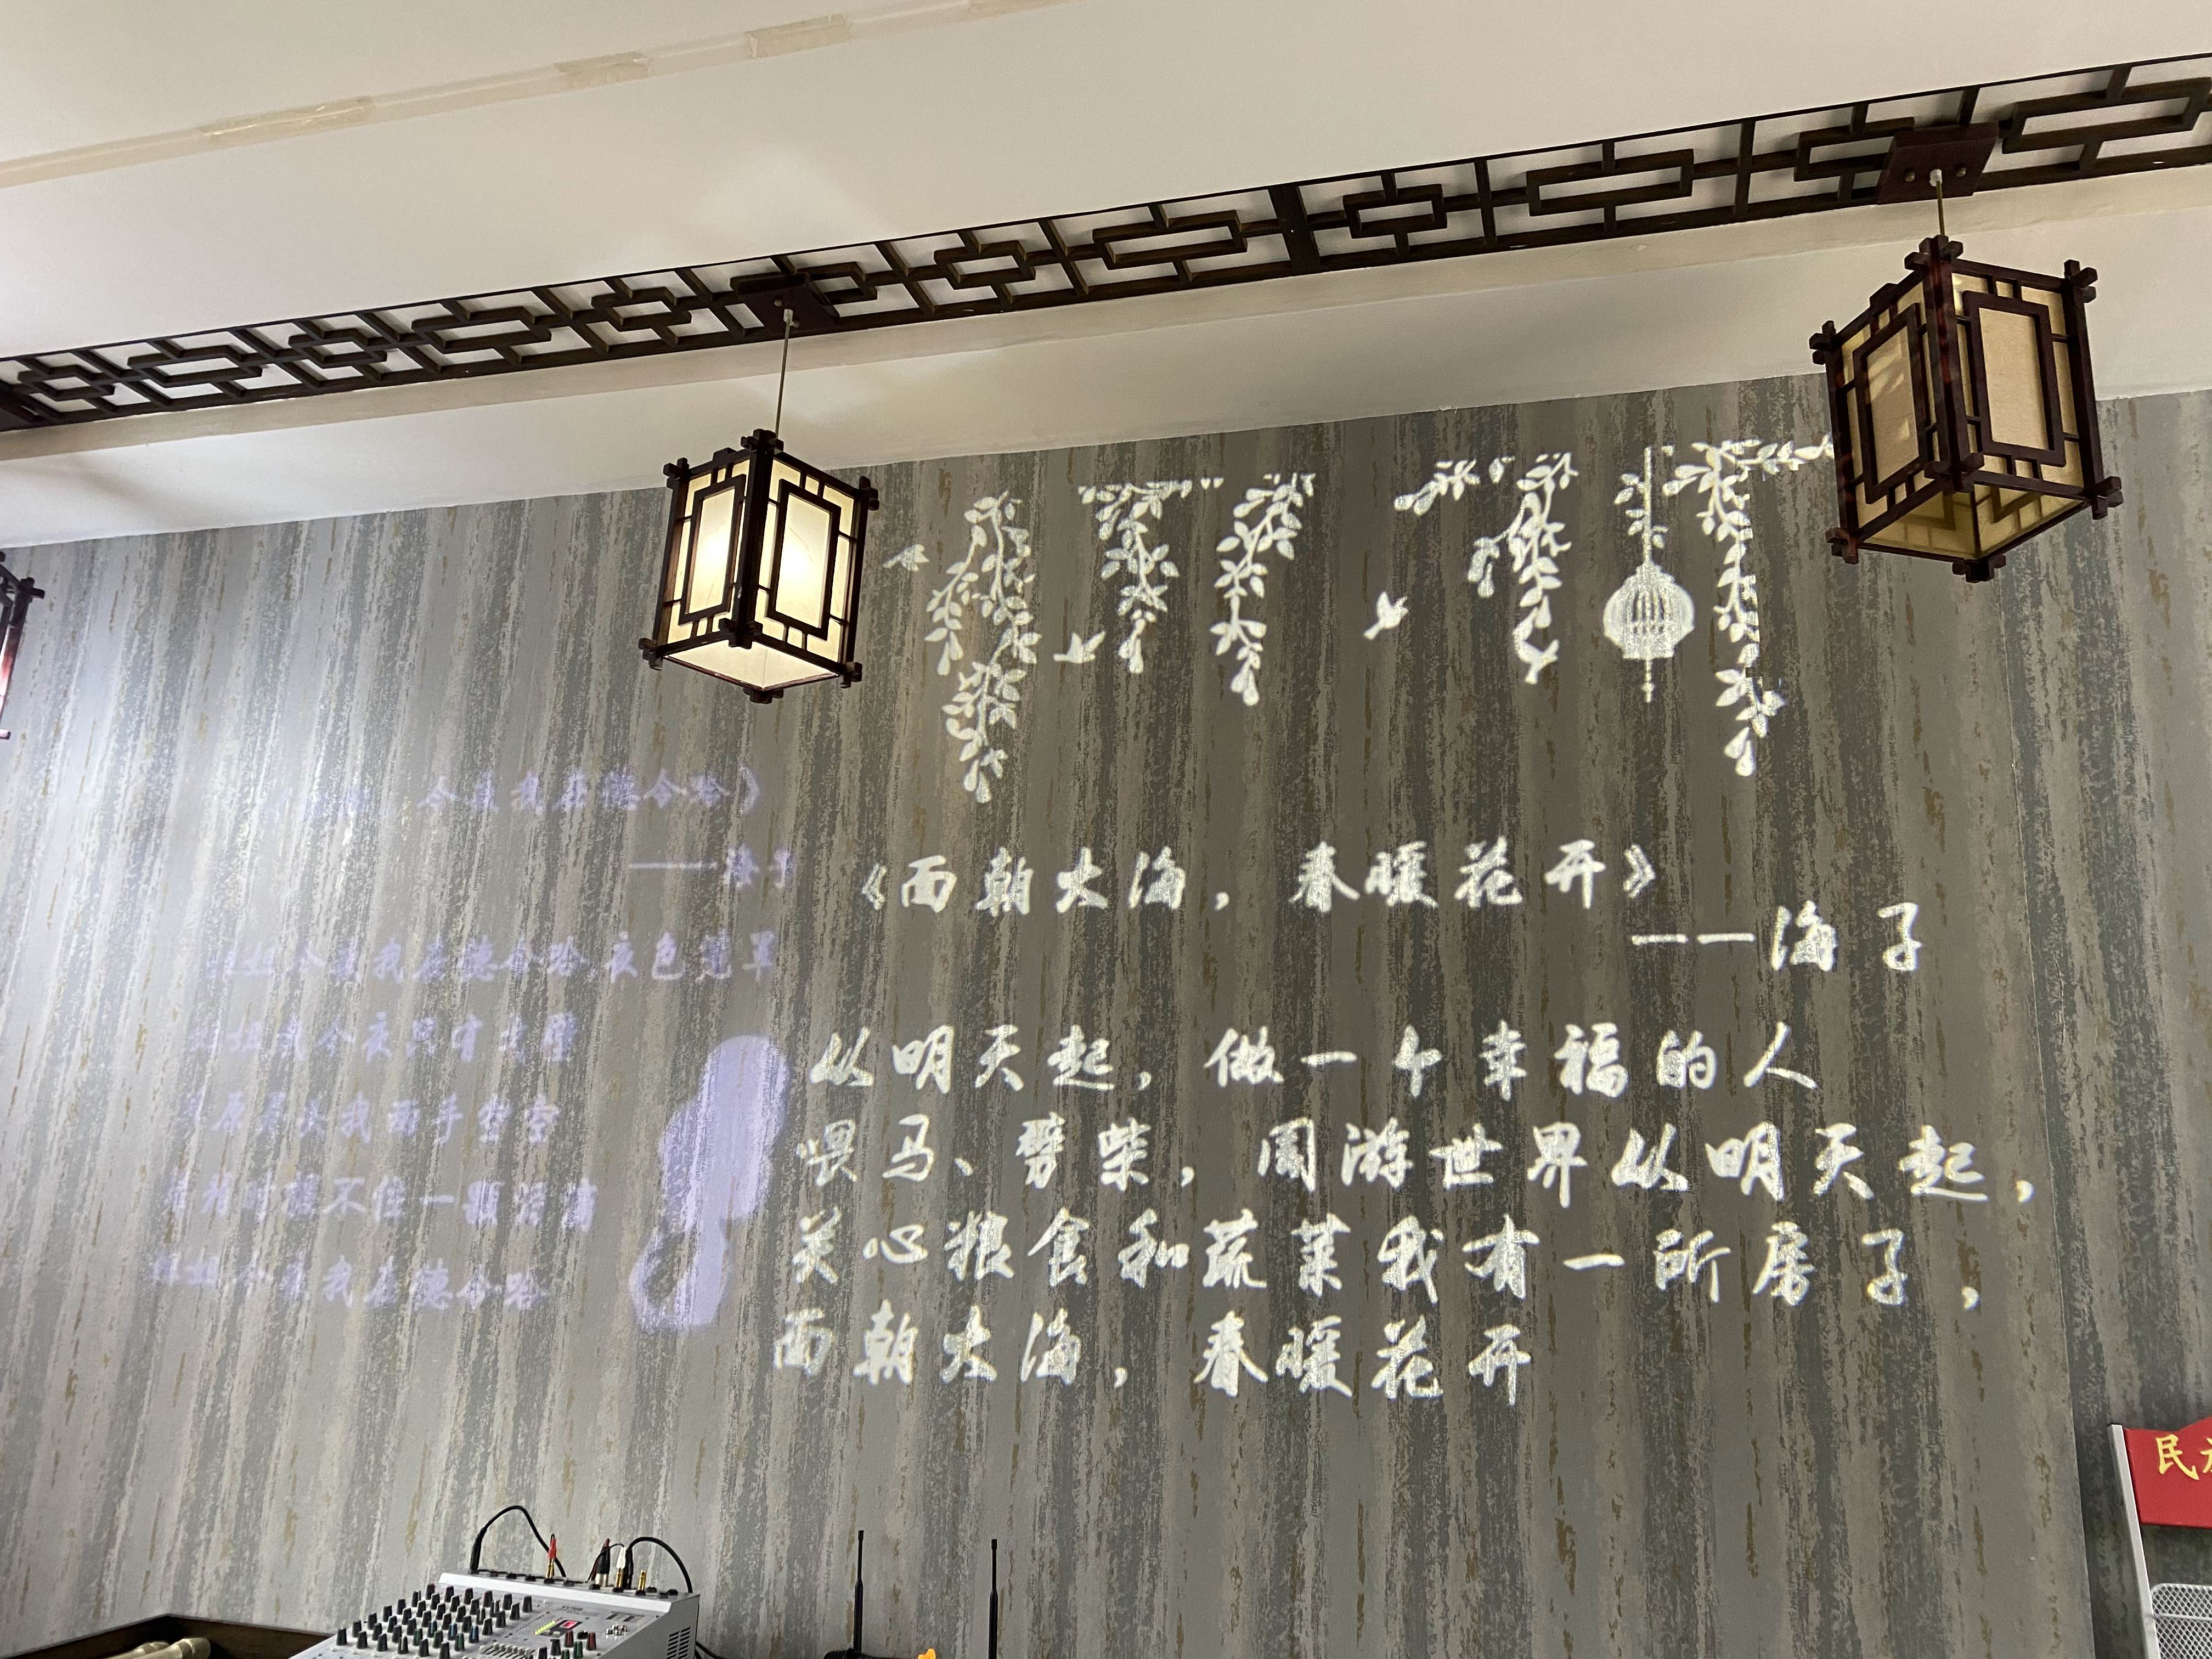 今夜我在德令哈》
——海子
姐姐今夜我在德令哈,夜色笼罩
姐姐我今夜只有戈壁
草原尽头我两手空空
悲痛时握不住一颗泪滴
姐姐今夜我在德令哈
《面朝大海，春暖花开》
——海子
从明天起，做一个幸福的人
喂马、劈柴，周游世界从明天起，
关心粮食和蔬菜我有一所房子，
面朝大海，春暖花开
民